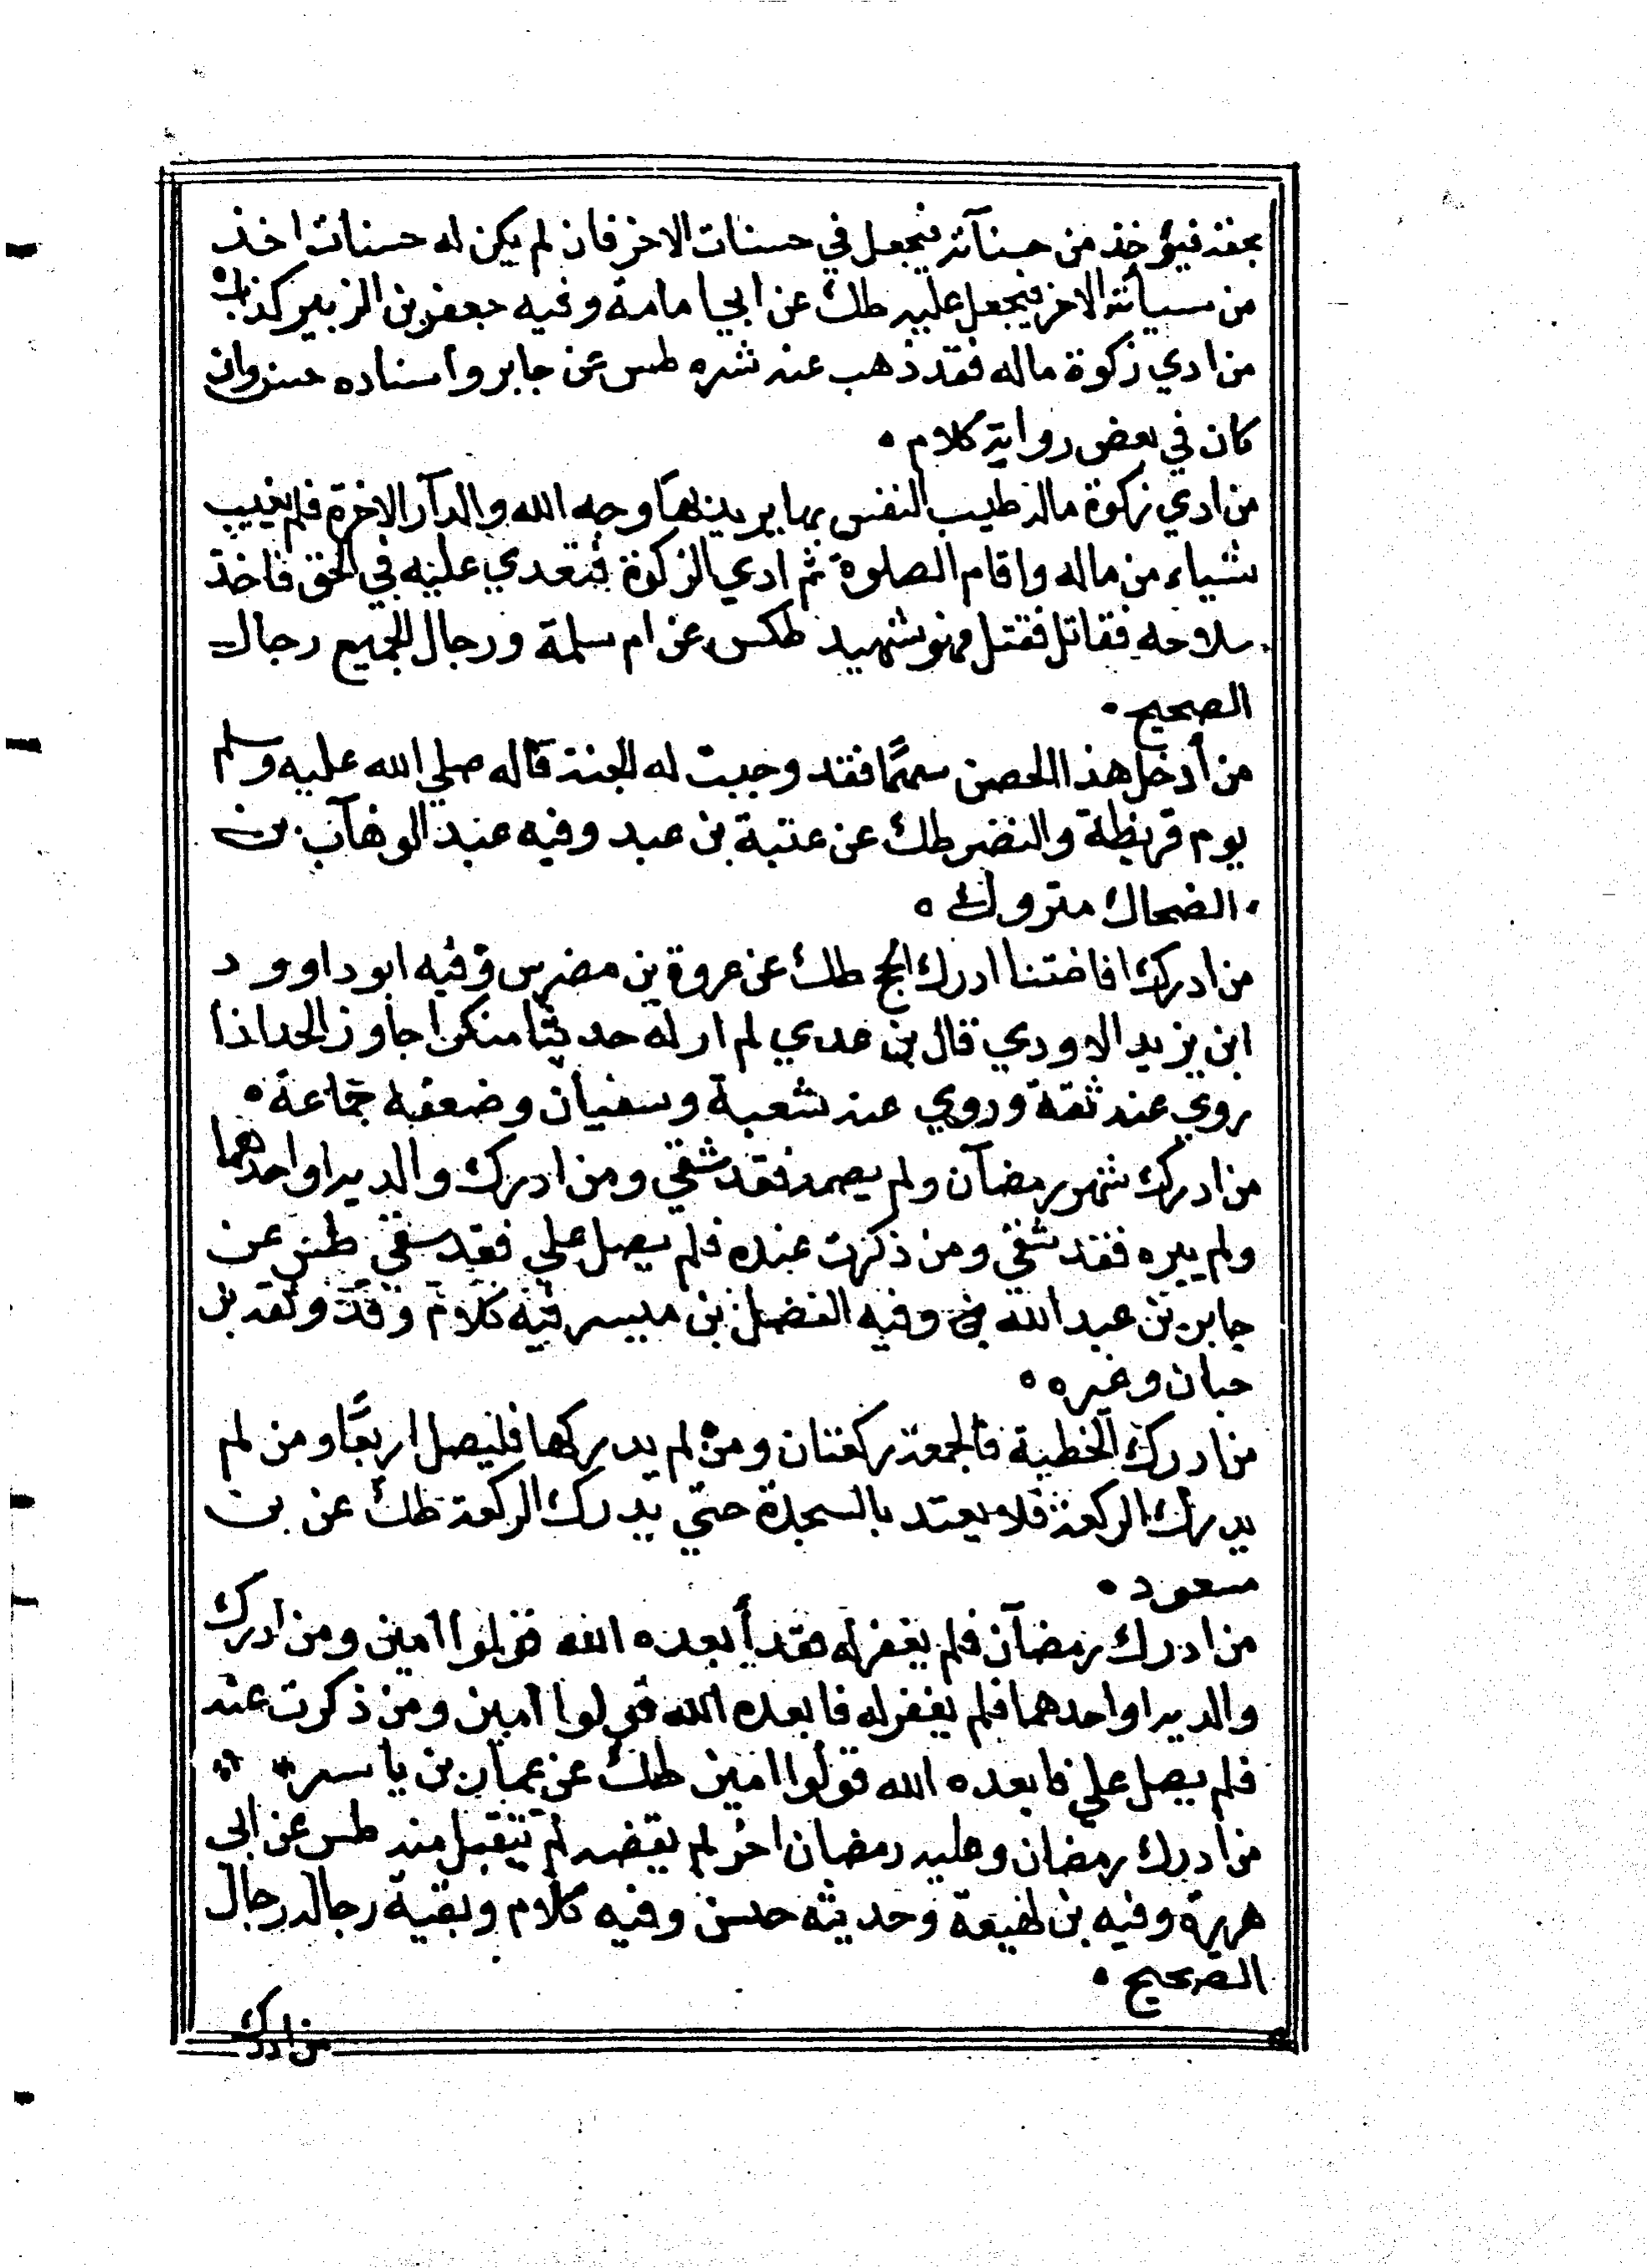 بحقه فيؤخذ من حسناته فيجعل في حسنات الاخر فان لم يكن له حسنات اخذ
من سيأته الاخر فيجعل عليه طك عن ابي امامة وفيه جعفر بن الزبير كذاب ه
من ادي زكوة ماله فقد ذهب عنه شره طس عن جابر واسناده حسن وان
كان في بعض رواية كلام ه
من ادي زكوة ماله طيب النفس بها يريد بها وجه الله والدآر الاخرة فلم يغيب
شياء من ماله واقام الصلوة ثم ادي الزكوة فتعدي عليه في الحق فاخذ
سلاحه فقاتل فقتل فهو شهيد طكس عن ام سلمة ورجال الجميع رجال
الصحيح ه
من أدخل هذا الحصن سهمًا فقد وجبت له الجنة قاله صلي الله عليه وسلم
يوم قريظة والنضر طك عن عتبة بن عبد وفيه عبد الوهآب بن
الضحاك متروك ه
من ادرك افاضتنا ادرك الحج طك عن عروة بن مضرس وفيه ابو داوود
ابن يزيد الاودي قال بن عدي لم ار له حديثا منكرا جاوز الحد اذا
روي عنه ثقة وروي عنه شعبة وسفيان وضعفه جماعة ه
من ادرك شهر رمضآن ولم يصمه فقد شقي ومن ادرك والديه او احدهما
ولم يبره فقد شقي ومن ذكرت عنده فلم يصل علي فقد سقي طس عن
جابر بن عبد الله وفيه الفضل بن مبيسر فيه كلام وقد وثقه بن
حبان وغيره ه
من ادرك الخطبة فالجمعة ركعتان ومن لم يدركها فليصل اربعًا ومن لم
يدرك الركعة فلا يعتد بالسجدة حتي يدرك الركعة طك عن بن
مسعود ه
من ادرك رمضآن فلم يغفر له فقد أبعده الله قولوا امين ومن ادرك
والديه او احدهما فلم يغفر له فابعده الله قولوا آمين ومن ذكرت عنده
فلم يصل علي فابعده الله قولوا امين طك عن عمار بن ياسر
من ادرك رمضان وعليه رمضان اخر لم يقضه لم يتقبل منه طس عن ابي
هريرة وفيه بن لهيعة وحديثه حسن وفيه كلام وبقية رجاله رجال
الصحيح ه
من ادرك